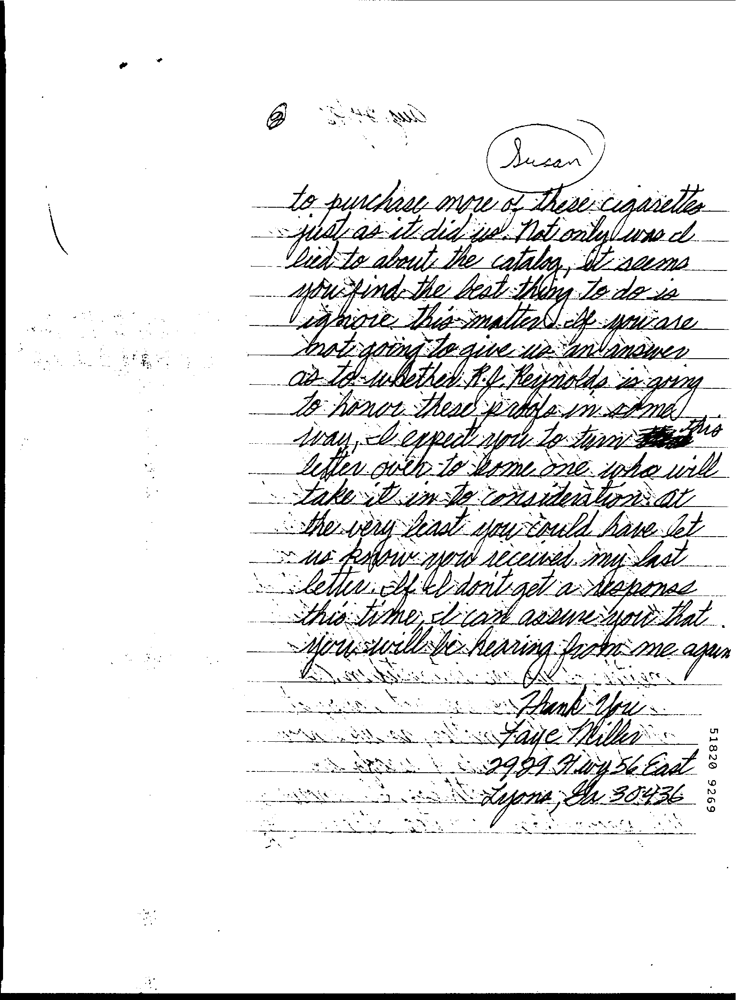 2
Susan
to purchase more of these cigarettes
just as it did us. Not only was I
lied to about the catalog, it seems
you find the best thing to do is
ignore this matter. If you are
not going to give us an answer
as to whether R.J. Reynolds is going
to honor these proofs in some
way, I expect you to turn this
letter over to some one who will
take it in to consideration. At
the very least you could have let
us know you received my last
letter. If I don't get a response
this time, I can assure you that
you will be hearing from me again
Thank You
Faye Miller
2929 Hwy 56 East
Lyons, Ga 30436
51820 9269